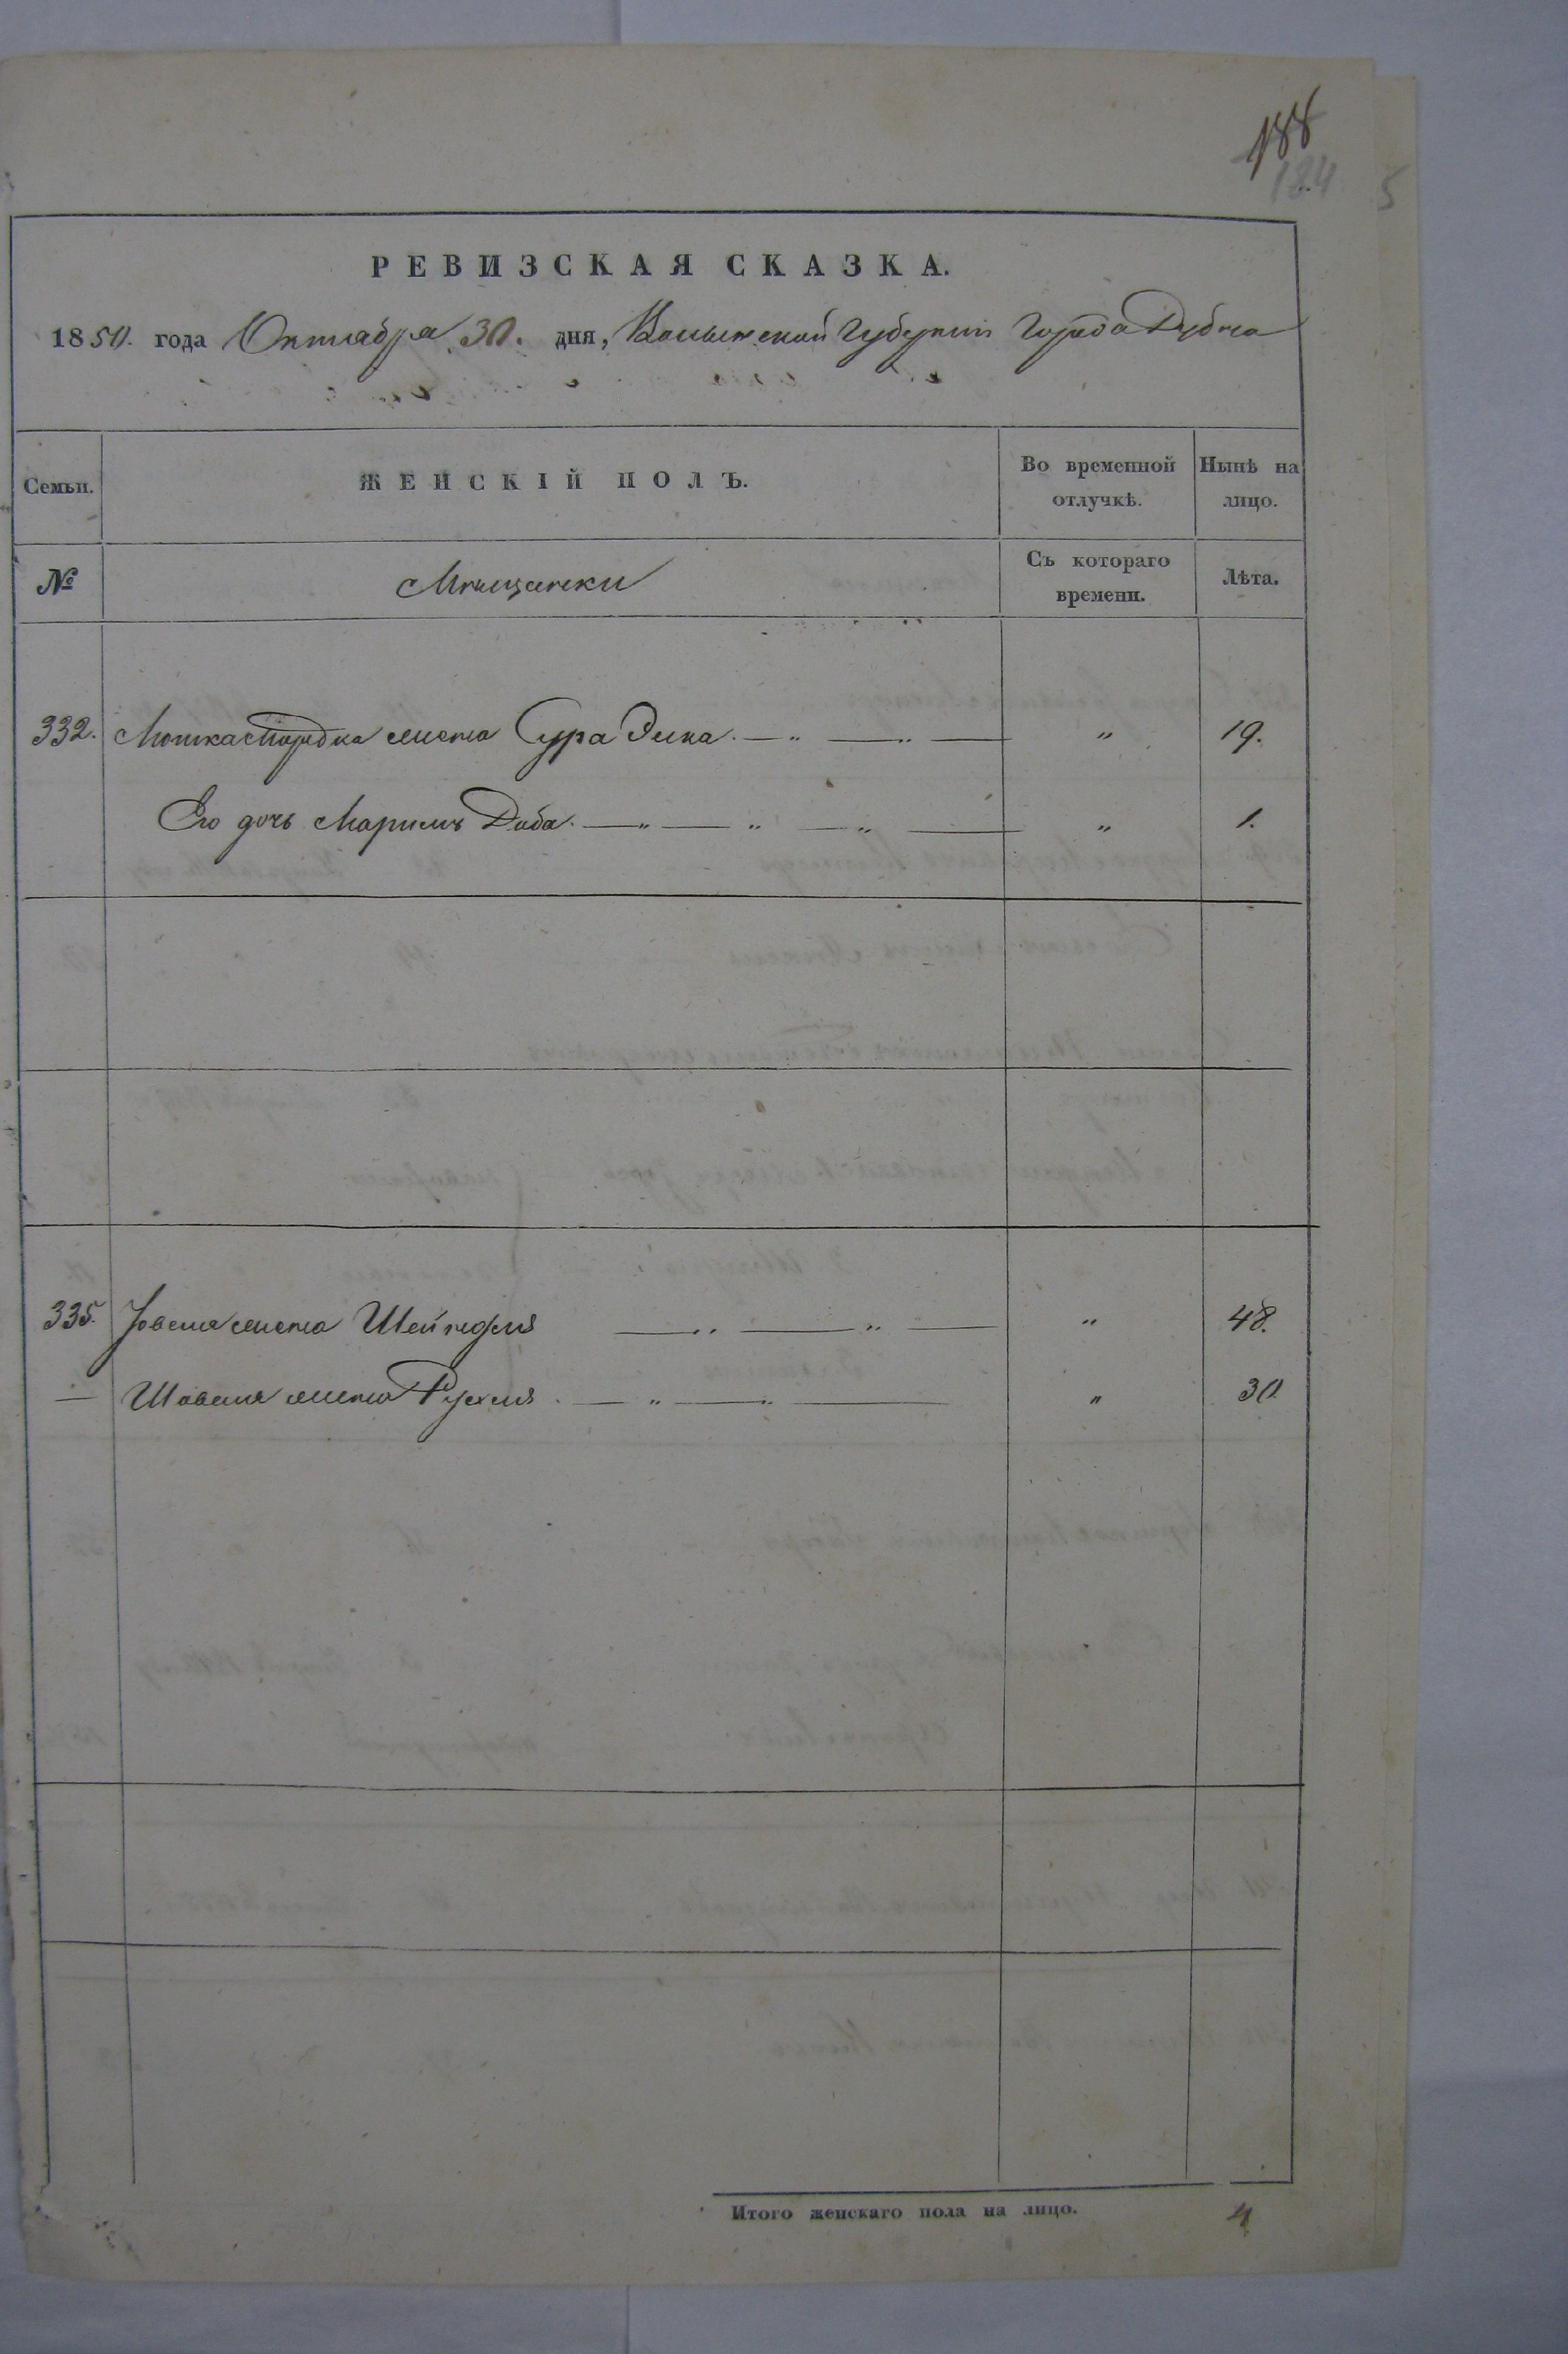 188
184
5
РЕВИЗСКАЯ СКАЗКА.
1850. года Октября 30. дня, Волынской Губернии Города Дубна
Семьи. ЖЕНСКІЙ ПОЛЪ. Во временной отлучкѣ. Нынѣ на лицо.
№ Мѣщанки Съ котораго времени. Лѣта.
332. Мошка Мордка жена Сура Эиха. — „ — „ — „ 19.
Его дочь Маріемъ Доба. — „ — „ — „ — „ 1.
335. Іовеля жена Шейндля — „ — „ — „ 48.
— Шовеля жена Рухля. — „ — „ — „ 30
Итого женскаго пола на лицо. 4